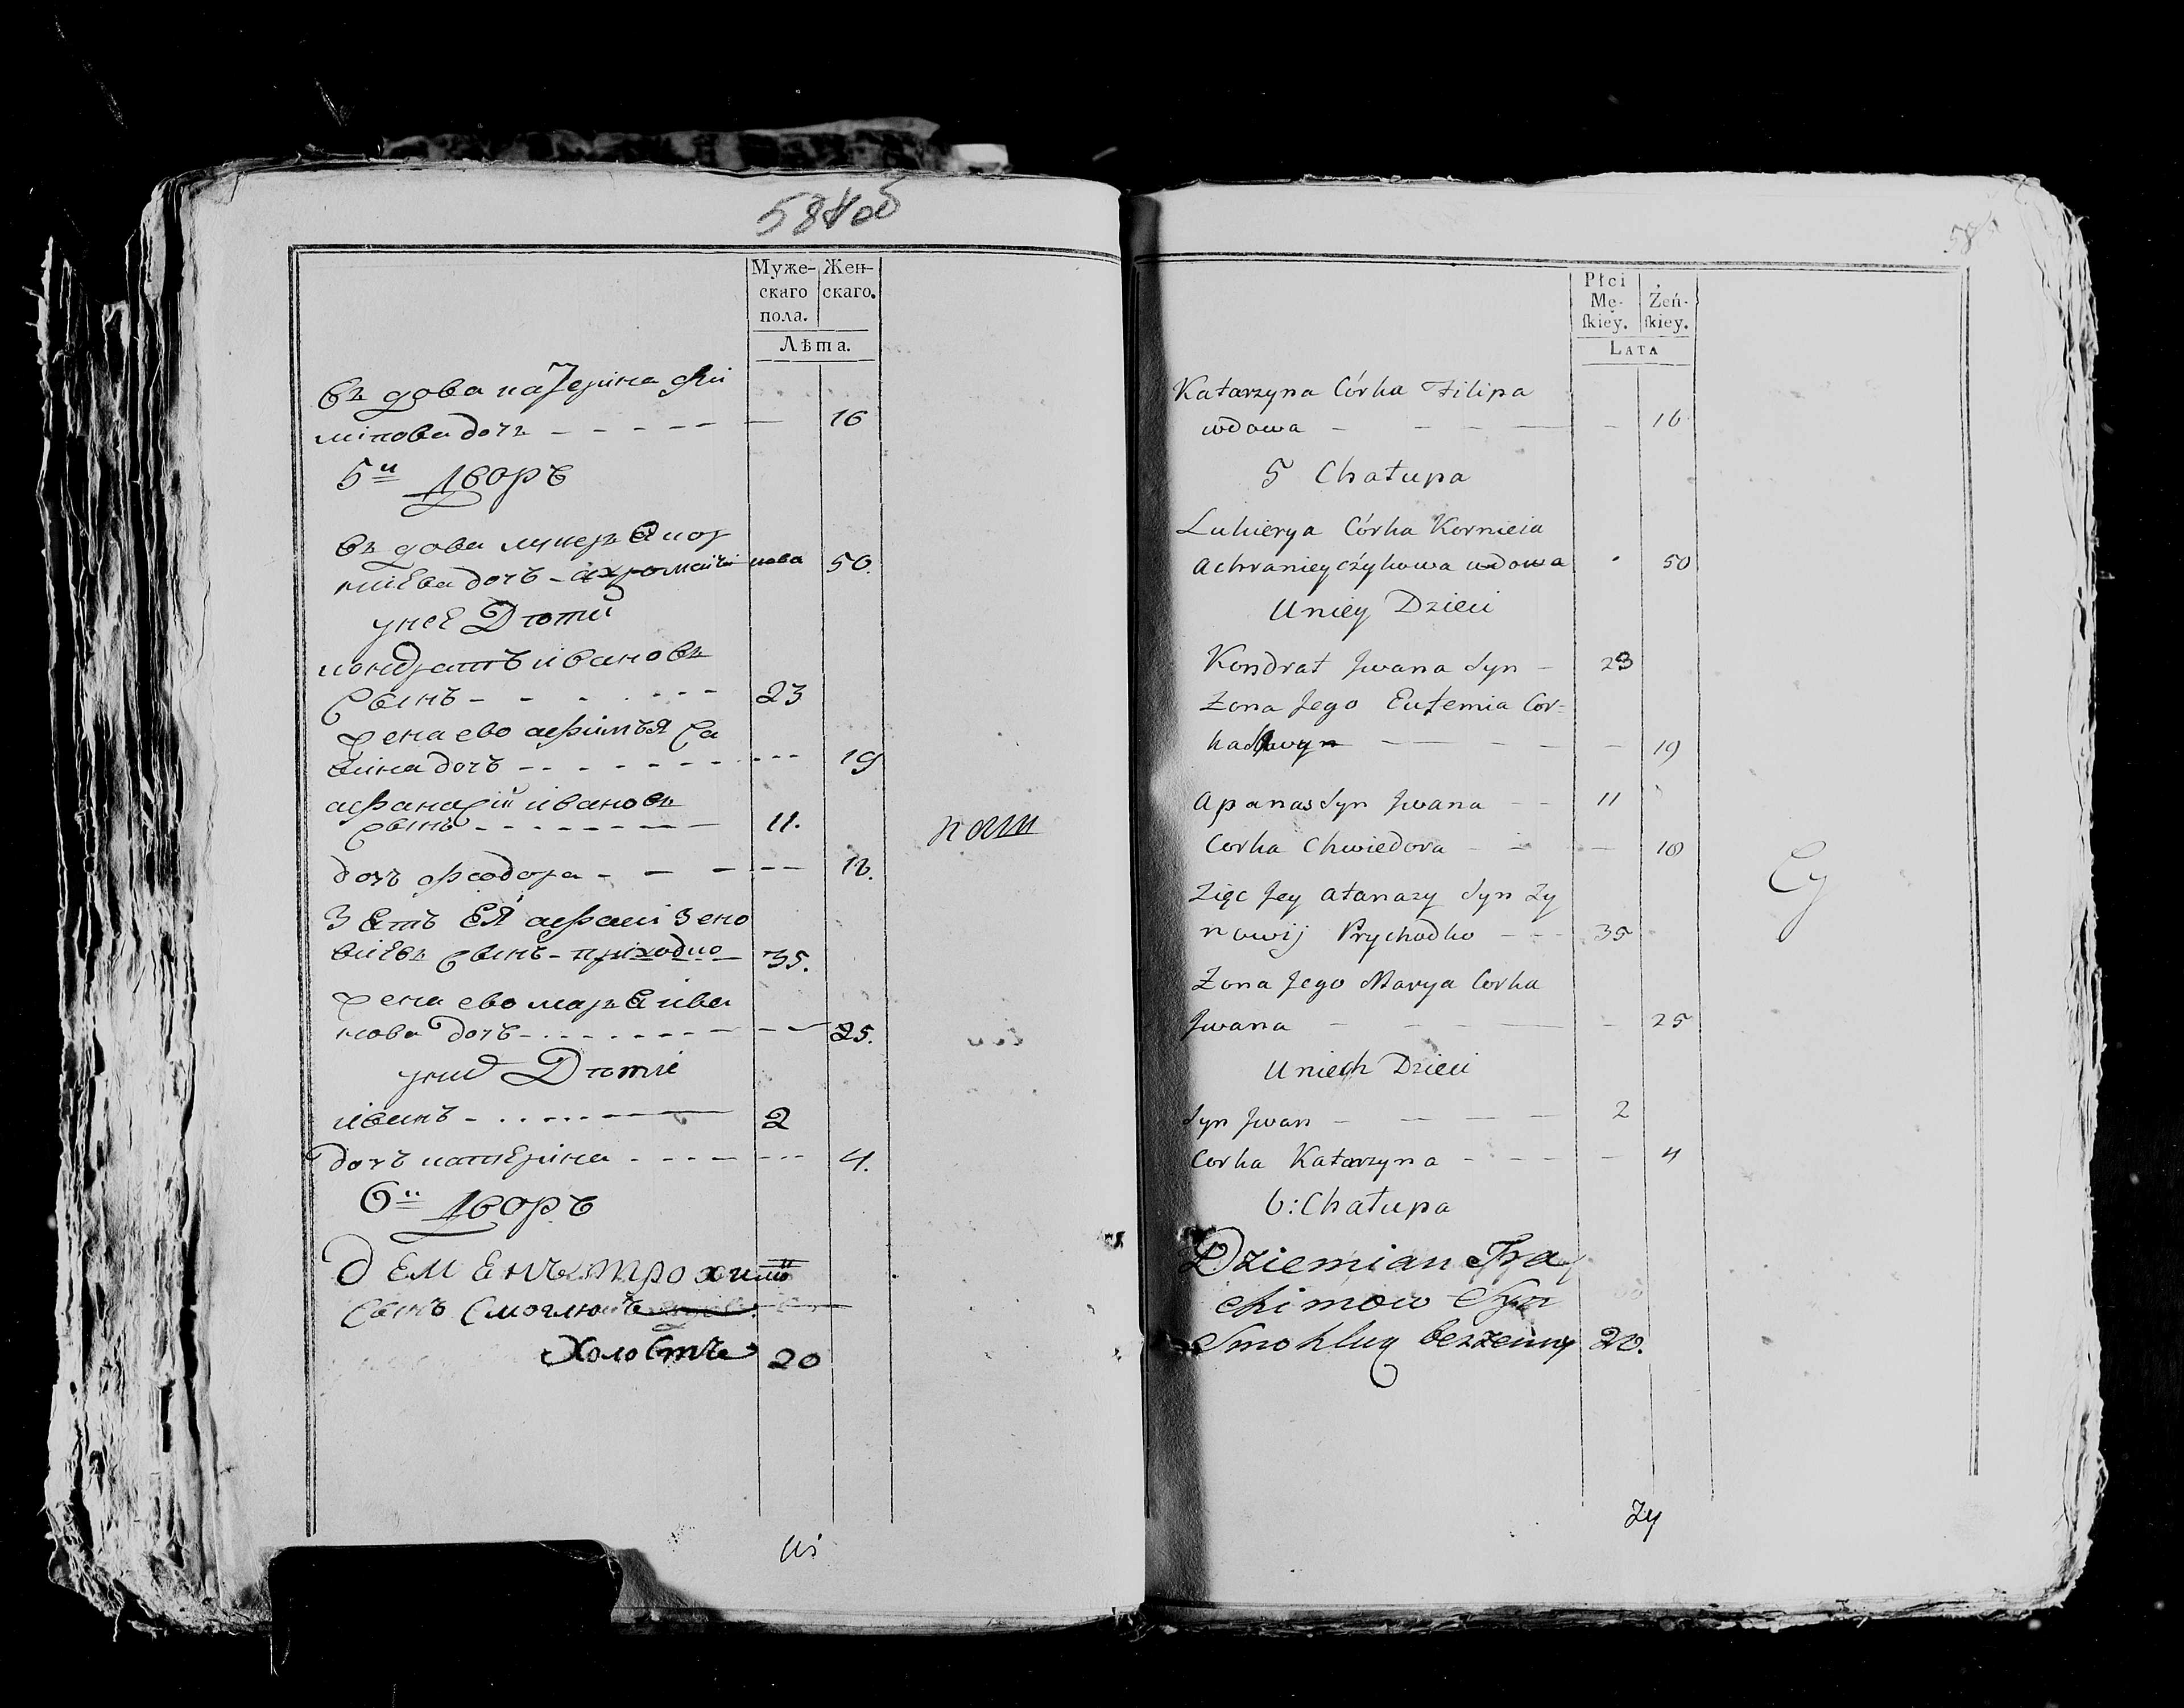 584об
Муже-
скаго
пола.
Жен-
скаго.
Лѣта.
вдова катерина фи
липова доч - - - - - 16
5й Дворъ
вдова лукеря кор
ниева доч - ахромѣичикова 50.
у нее Дѣти
кондратъ ивановъ
сынъ - - - - - 23
жена ево афимъя са
вина доч - - - - - 19
афанасiй ивановъ
сынъ - - - - - 11.
доч феодора - - - - 18.
зеть ея афанасi зено
виевъ сынъ - приходко 35.
жена ево маря ива
нова доч - - - - - 25.
у них Дѣти
иванъ - - - - - 2
доч катерина - - - - 4.
6й Дворъ
деменъ трохимо
сынъ смоглюкъ
Холостъ 20
Płci
Mę-
ſkiey.
Żeń-
ſkiey.
LATA
Katarzyna Córka Filipa
wdowa - - - - 16
5 Chałupa
Lukierya Córka Kornieia
Achranieyczykowa wdowa 50
U niey Dzieci
Kondrat Jwana Syn - 23
Zona Jego Eufemia Cor-
ka - - - - 19
Apanas Syn Jwana - - 11
Corka Chwiedora - - - 18
Zięc Jey Atanazy Syn Zy
nowij Prychodko - - - 35
Zona Jego Marya Corka
Jwana - - - - 25
U niech Dzieci
Syn Jwan - - - - 2
Corka Katarzyna - - - - 4
6: Chałupa
Dziemian Tra
chimow Syn
Smohluy bezzenny 20.